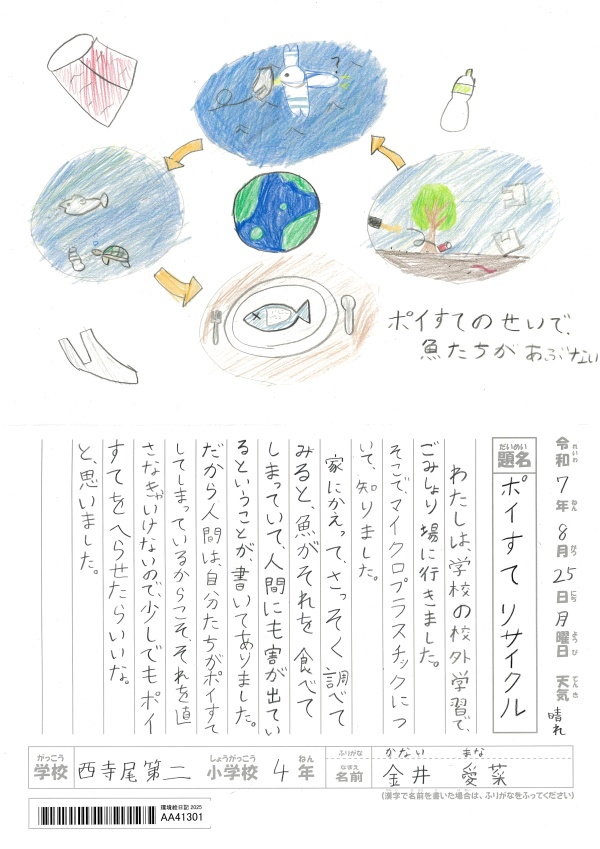 ポイすてのせいで、
魚たちがあぶない
令和7年8月25日月曜日 天気 晴れ
れいわ ねん がつ にち ようび てんき
だいめい
題名
ポイすて リサイクル
わたしは、学校の校外学習で、
ごみしょり場に行きました。
そこで、マイクロプラスチックにつ
いて、知りました。
家にかえって、さっそく調べて
みると、魚がそれを食べて
しまっていて、人間にも害が出てい
るということが、書いてありました。
だから人間は、自分たちがポイすて
してしまっているからこそ、それを直
さなきゃいけないので、少しでもポイ
すてをへらせたらいいな。
と、思いました。
がっこう しょうがっこう ねん ふりがな かない まな
学校 西寺尾第二 小学校 4年 なまえ 名前 金井 愛菜
(漢字で名前を書いた場合は、ふりがなをふってください)
環境絵日記 2025
AA41301